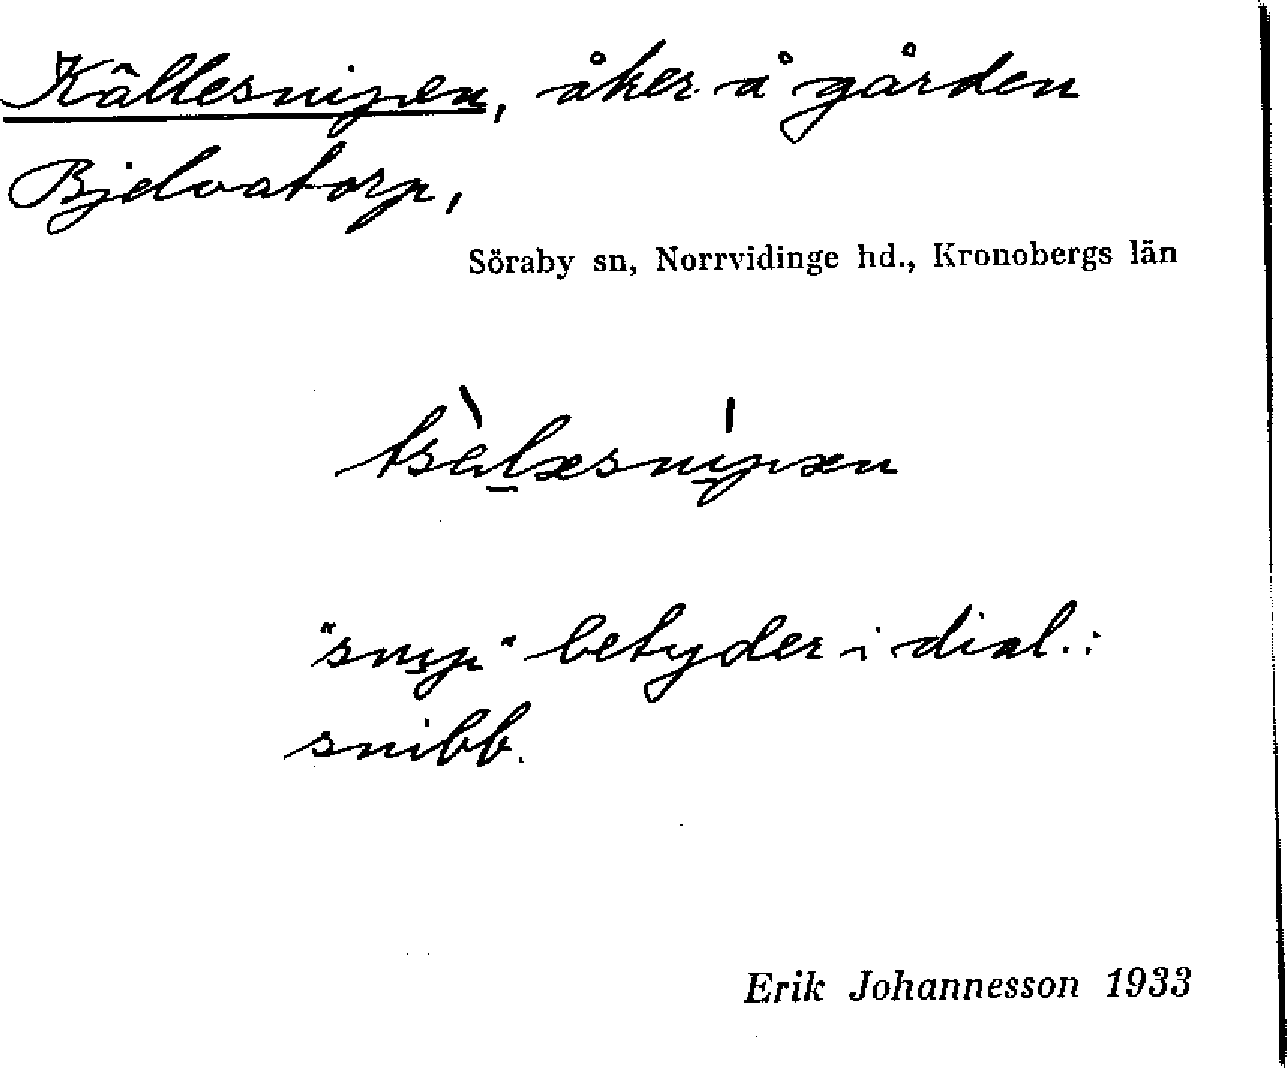 Källesnipen, åker å gården
Bjelvatorp,
Söraby sn, Norrvidinge hd., Kronobergs län
"snip" betyder i dial.:
snibb.
Erik Johannesson 1933